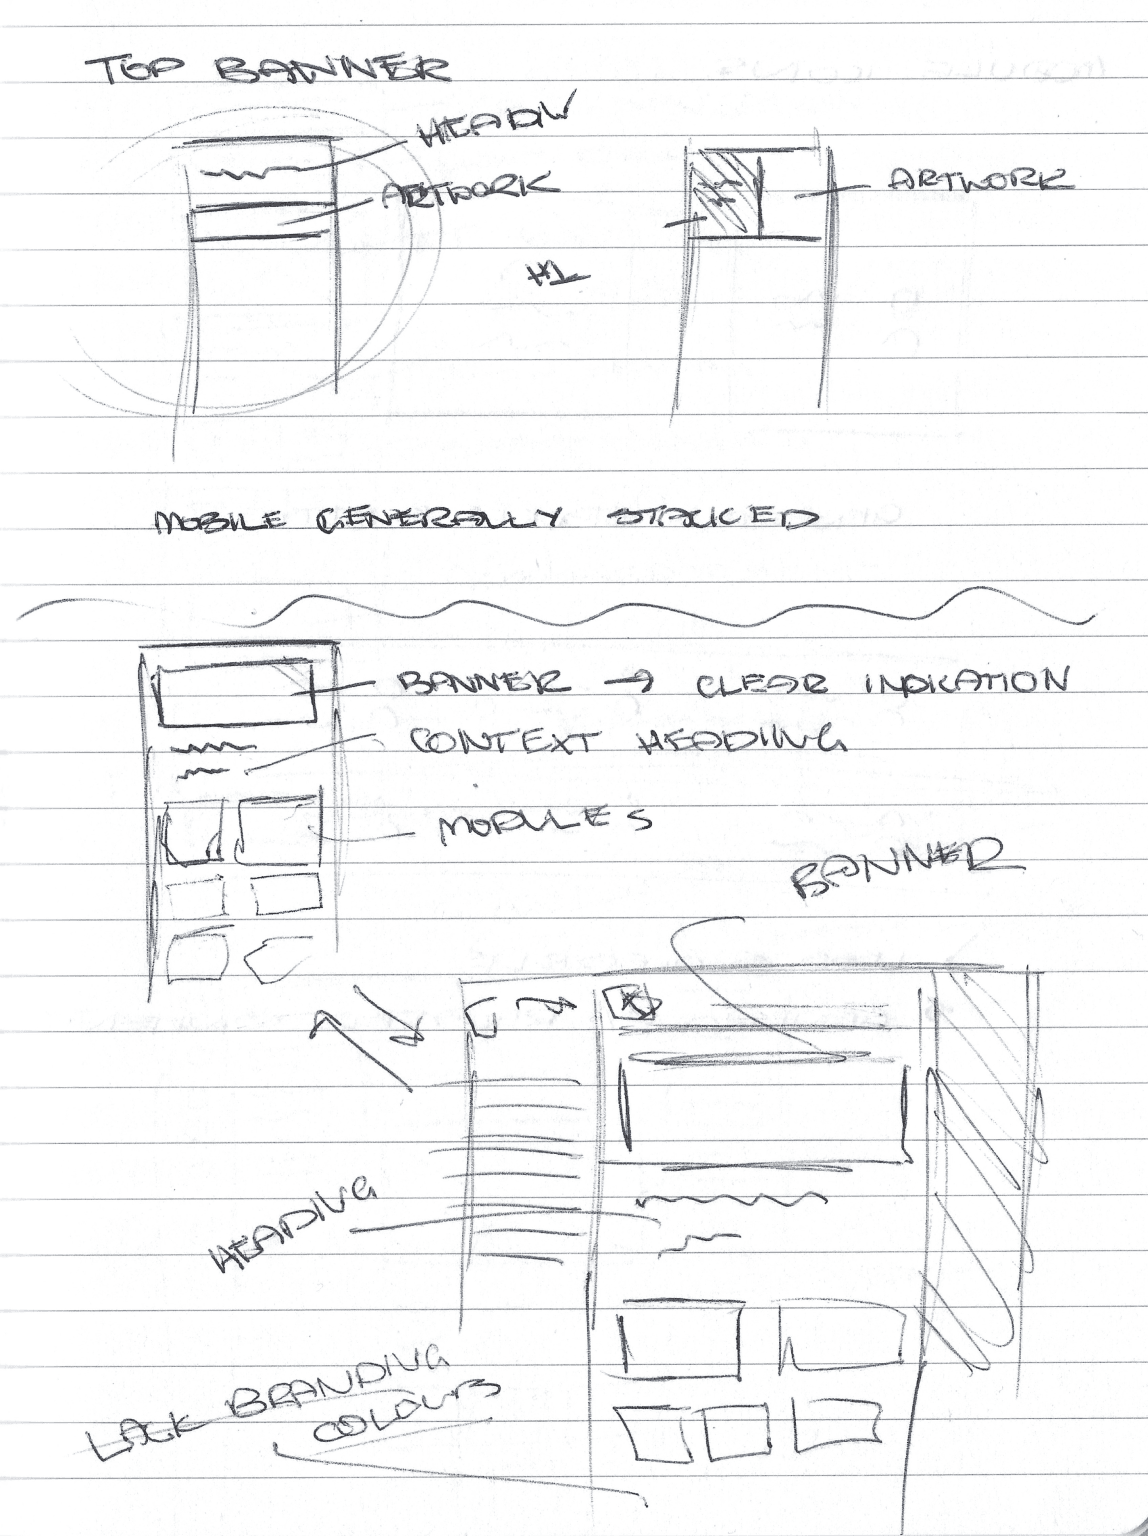 TOP BANNER
HEADIN
ARTWORK
ARTWORK
H1
MOBILE GENERALLY STACKED
BANNER → CLEAR INDICATION
CONTEXT HEADING
MODULES
BANNER
HEADING
LACK BRANDING
COLOURS